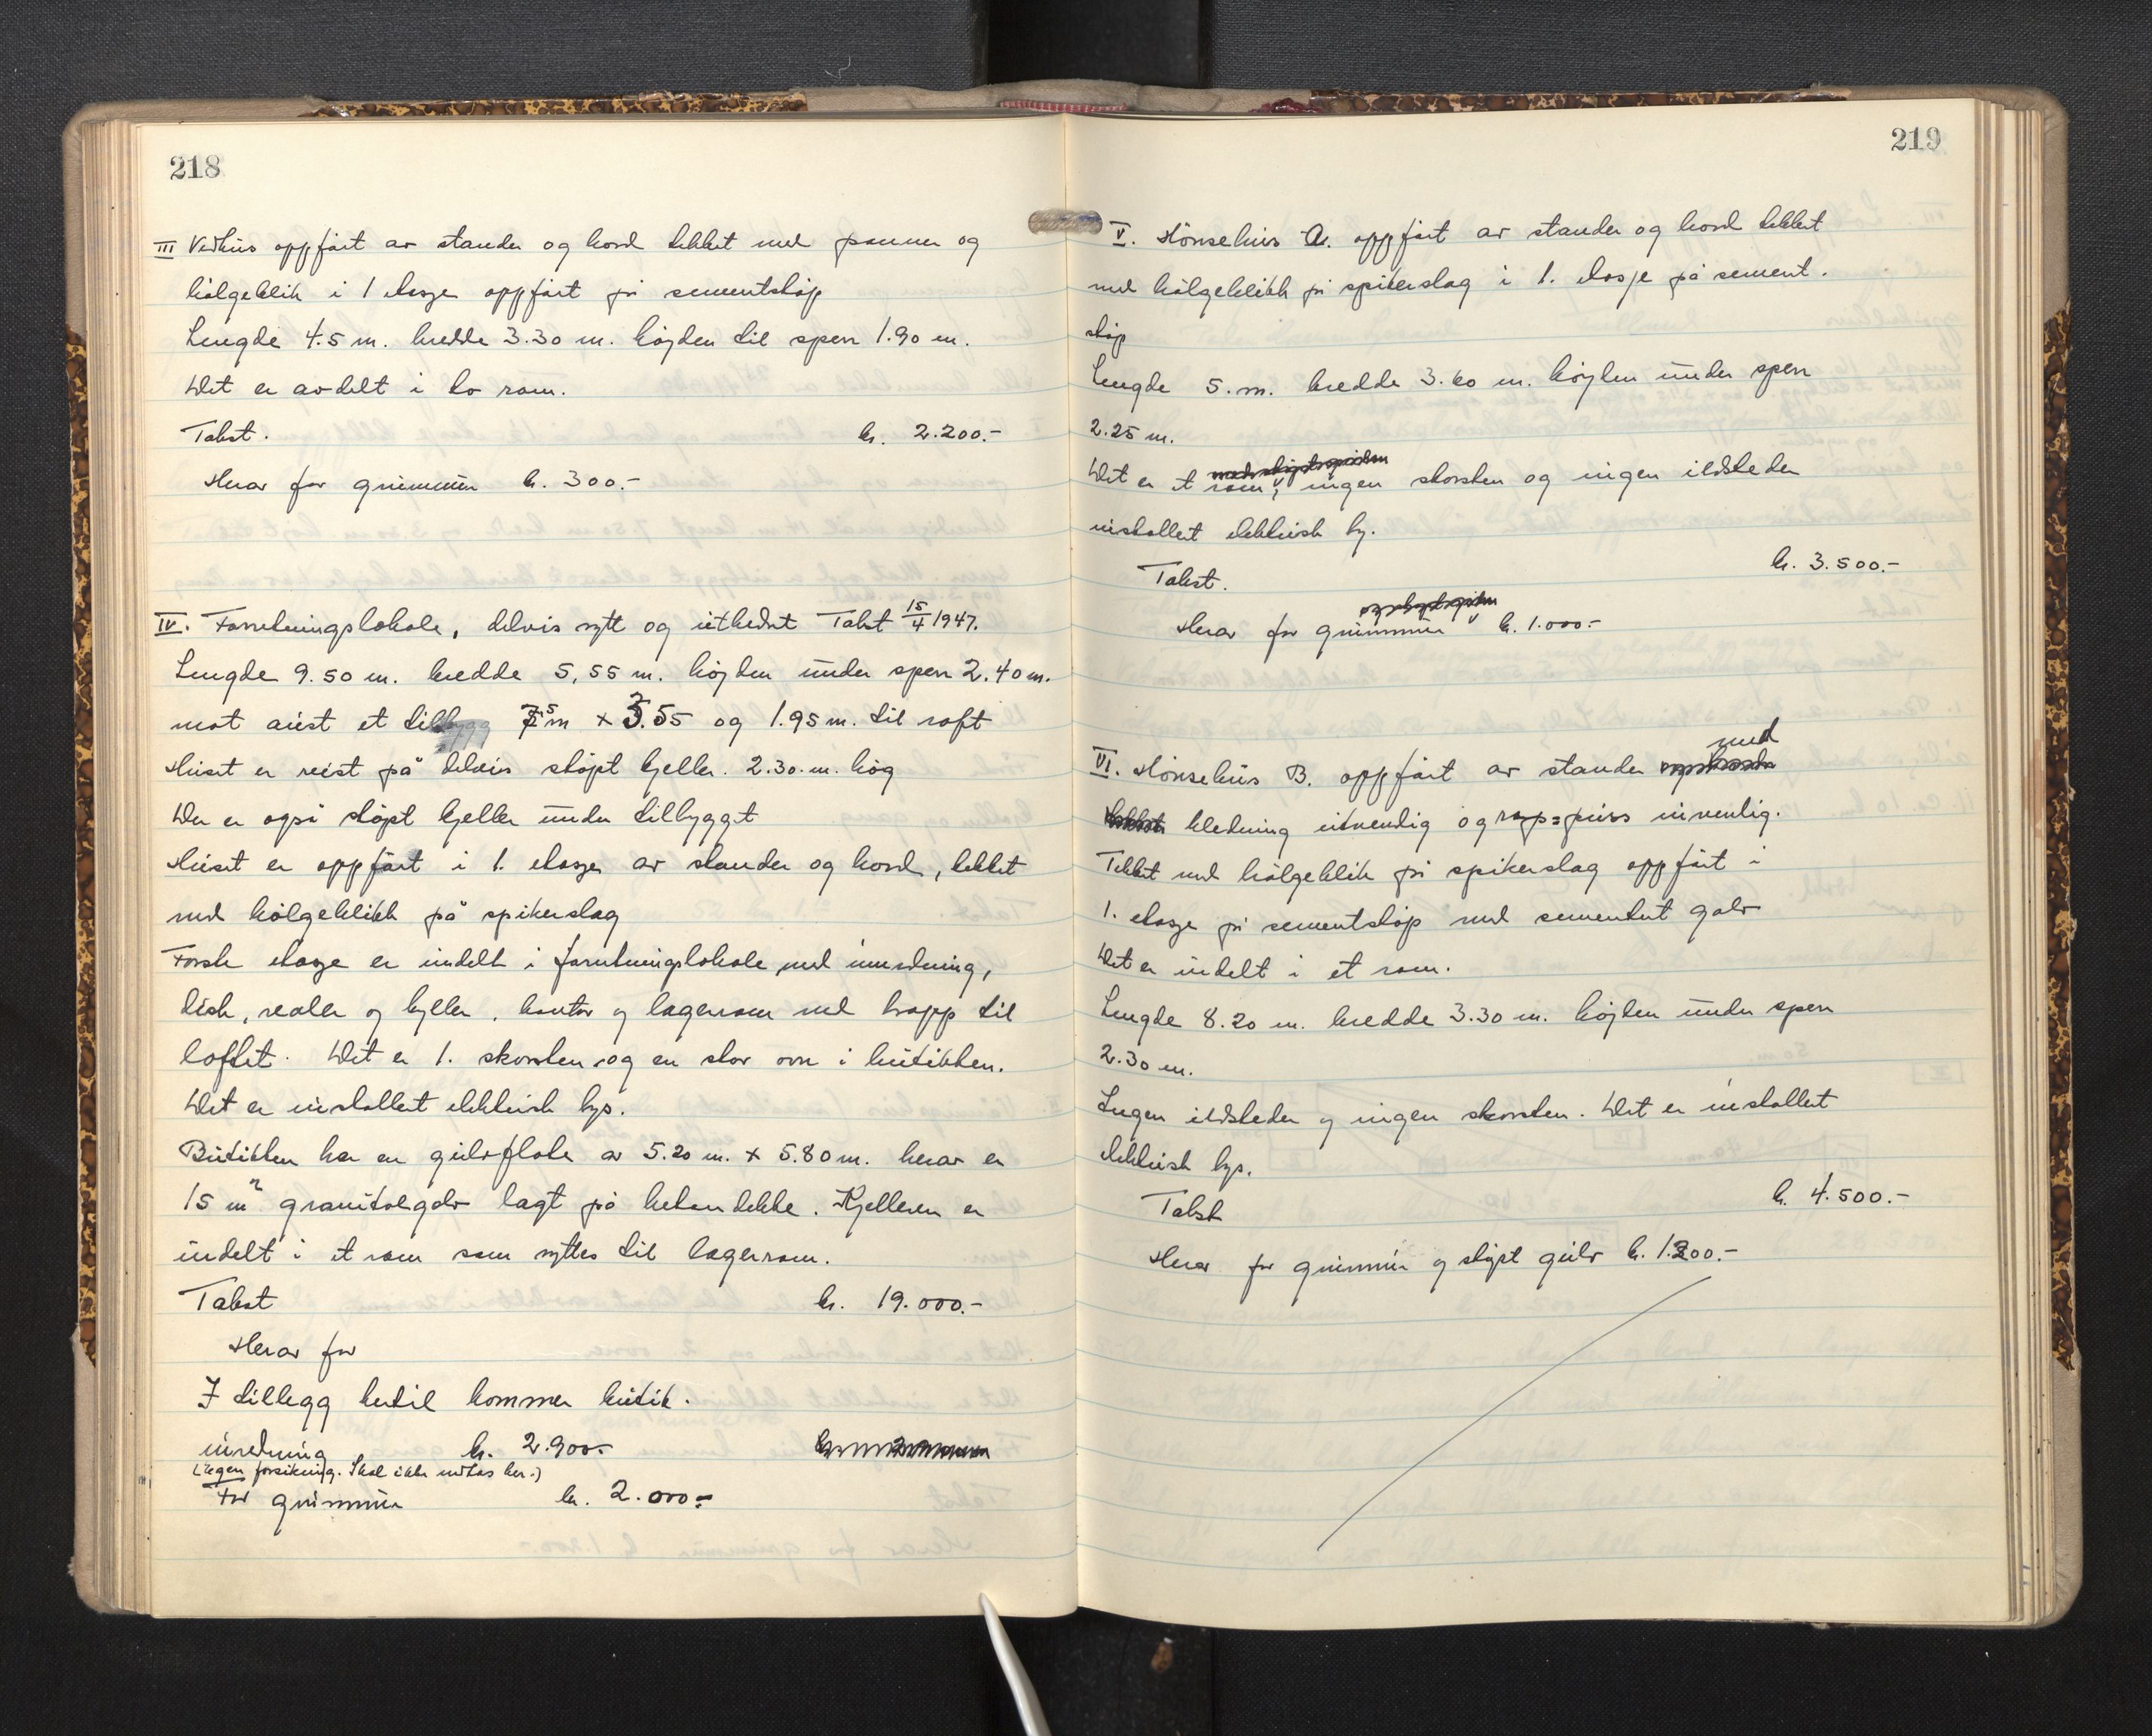 218
III Vedhus oppført av stander og bord tekket med panner og
bølgeblik i 1 etasje oppført på sementstøp
Lengde 4.5 m. bredde 3.30 m. høyden til sperr 1.90 m.
Det er avdelt i to rom.
Takst. kr. 2.200.-
Herav for grunmur kr. 300.-
IV. Forretningslokale, delvis nytt og utbedret Takst 15/4 1947.
Lengde 9.50 m. bredde 5,55 m. højden under sperr 2.40 m.
mot aust et tilbygg m x 3.55 og 1.95 m. til raft
Huset er reist på delvis støpt kjeller. 2.30. m. høg
Der er også støpt kjeller under tilbygget
Huset er oppført i 1. etasje av stander og bord, tekket
med bølgeblikk på spikerslag
Første etasje er indelt i forretningslokale, med inredning,
disk, reoler og hyller, kontor og lagerrom med trapp til
loftet. Det er 1. skorsten og en stor ovn i butikken.
Det er installert elektrisk lys.
Butikken har en gulvflate av 5.20 m. x 5.80 m. herav er
15 m² granitolgolv lagt på betondekke. Kjelleren er
indelt i et rom som nyttes til lagerrom.
Takst kr. 19.000.-
Herav for
I tillegg hertil kommer butik.
inredning kr. 2.900.-
(Egen forsikring. Skal ikke medtas her.)
For grunmur kr. 2.000.-
219
V. Hönsehus A. oppført av stander og bord tekket
med bølgeblikk på spikerslag i 1. etasje på sement.
støp
Lengde 5. m. bredde 3.60 m. høyden under sperr
2.25 m.
Det er et rom, ingen skorsten og ingen ildsteder
installert elektrisk ly.
Takst. kr. 3.500.-
Herav for grunnmur kr. 1.000.-
med
VI. Hönsehus B. oppført av stander
kledning utvendig og rapp=puss invendig.
Tekket med bølgeblik på spikerslag oppført i
1. etasje på sementstøp med sementert golv
Det er indelt i et rom.
Lengde 8.20 m. bredde 3.30 m. højden under sperr
2.30 m.
Ingen ildsteder og ingen skorsten. Det er installert
elektrisk lys.
Takst kr. 4.500.-
Herav for grunmur og støpt gulv kr. 1.200.-